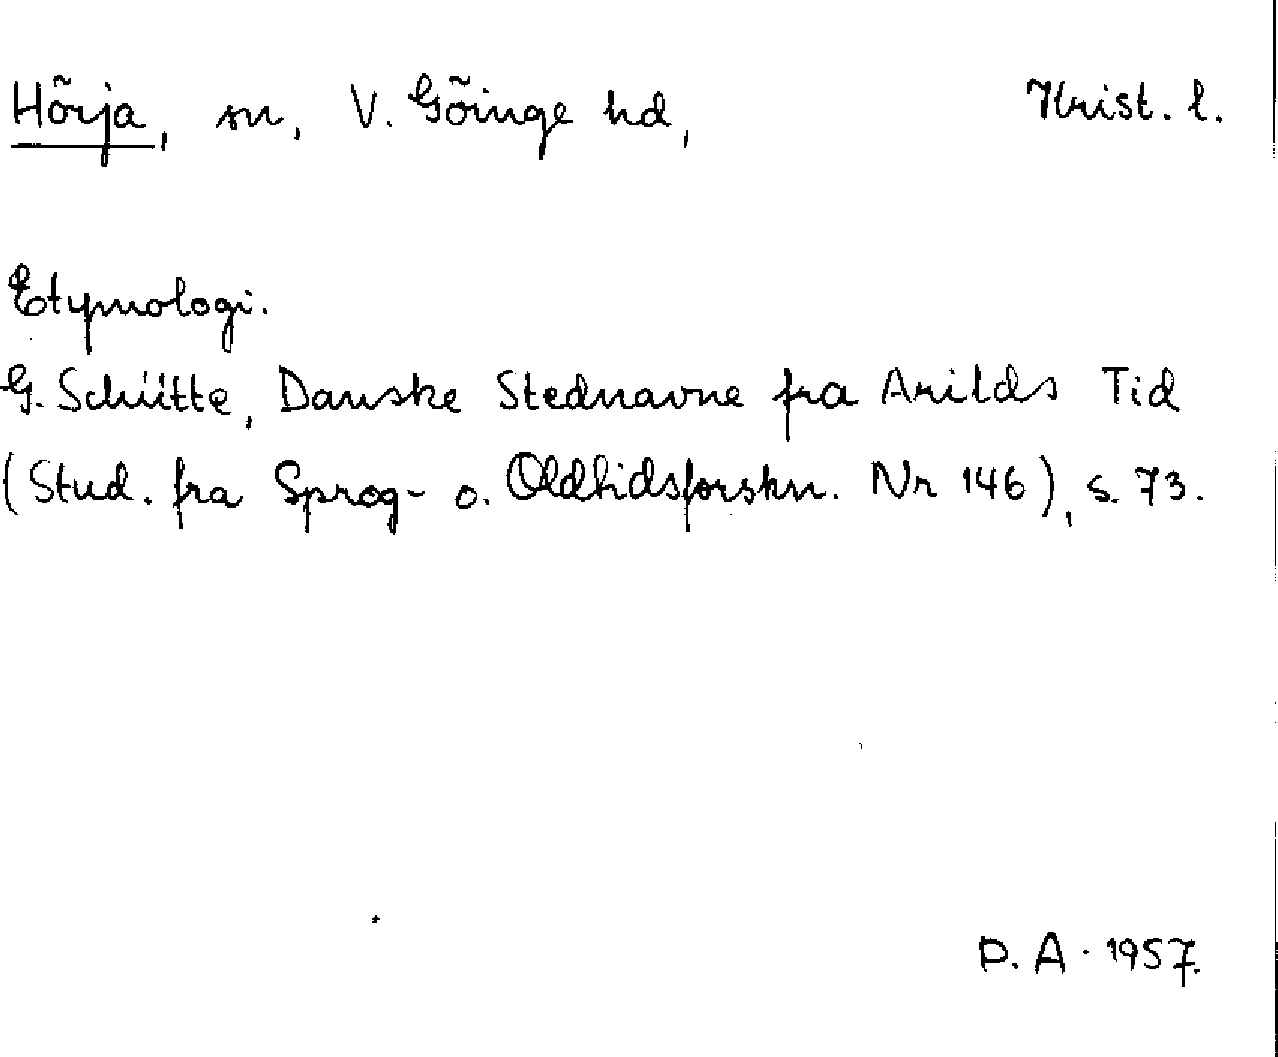 Hörja, sn, V. Göinge hd, Krist. l.
Etymologi.
G. Schütte, Danske Stednavne fra Arilds Tid
(Stud. fra Sprog- o. Oldtidsforskn. Nr 146), s. 73.
D. A. 1957.